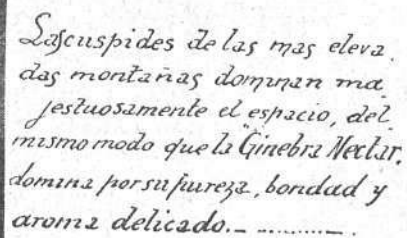 Las cuspides de las mas eleva
das montañas dominan ma
jestuosamente el espacio, del
mismo modo que la "Ginebra Nectar.
domina por su pureza, bondad y
aroma delicado._ _ ........... _ .